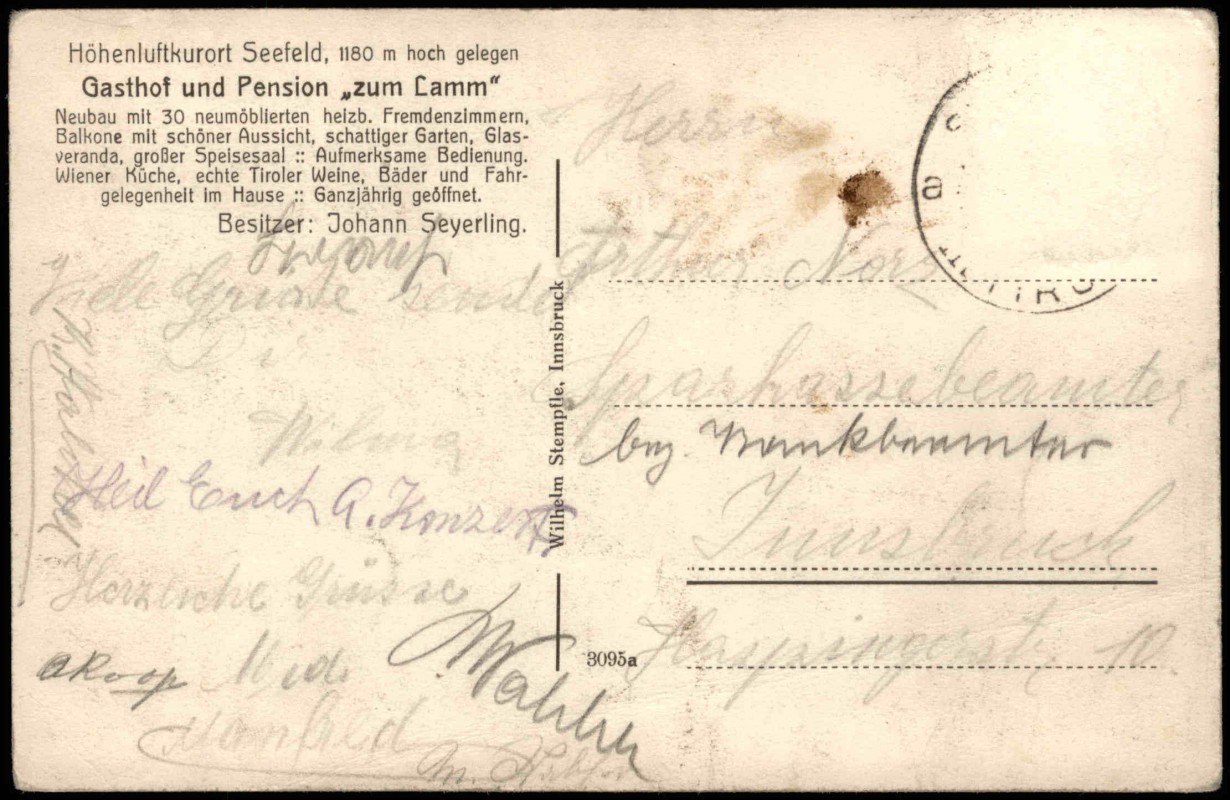 Höhenluftkurort Seefeld, 1180 m hoch gelegen
Gasthof und Pension „zum Lamm“
Neubau mit 30 neumöblierten heizb. Fremdenzimmern,
Balkone mit schöner Aussicht, schattiger Garten, Glas-
veranda, großer Speisesaal :: Aufmerksame Bedienung.
Wiener Küche, echte Tiroler Weine, Bäder und Fahr-
gelegenheit im Hause :: Ganzjährig geöffnet.
Besitzer: Johann Seyerling.
Viele Grüsse sendet
Di
Wilma
Heil Euch A. Konzert
Herzliche Grüsse
Manfred
Wilhelm Stempfle, Innsbruck
3095a
Herrn
Arthur Norz
Sparkassebeamter
bez. Bankbeamter
Innsbruck
Haspingerst. 10
a
TIRO